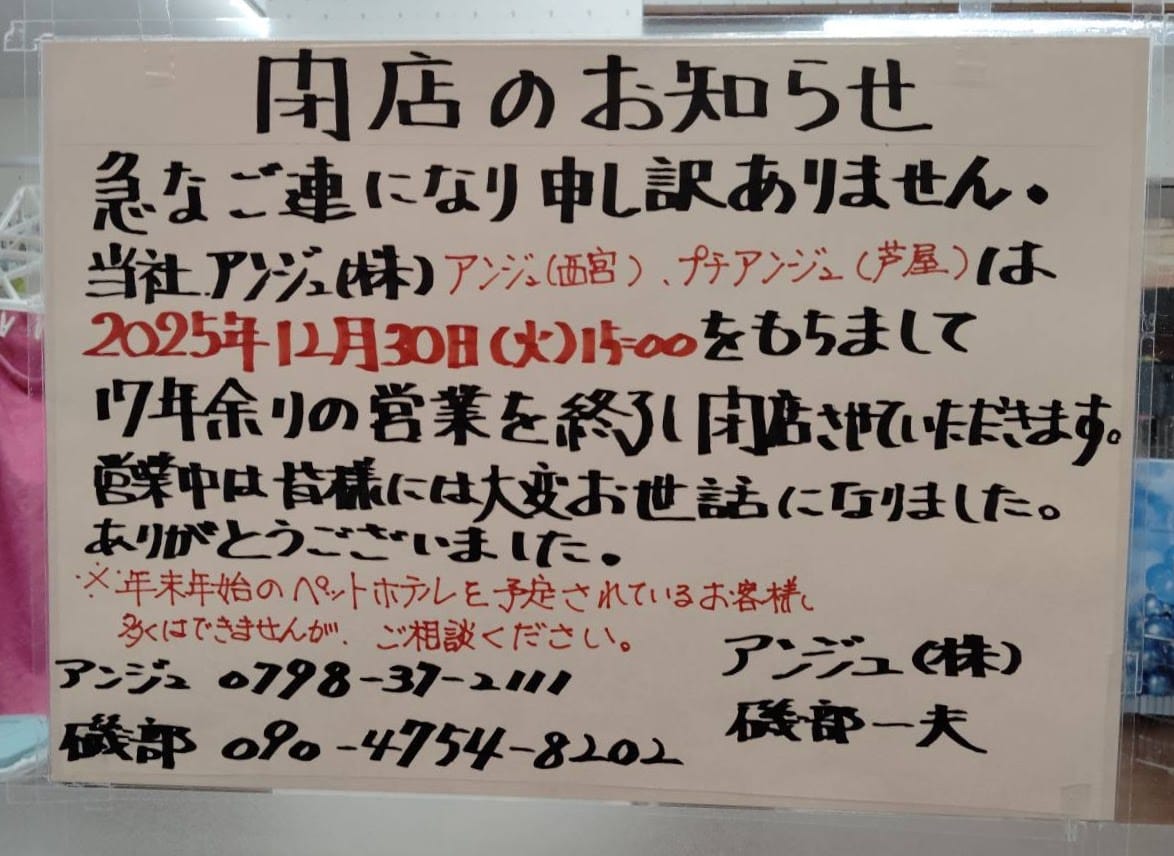 閉店のお知らせ
急なご連になり申し訳ありません。
当社アンジュ(株)アンジュ(西宮)、プチアンジュ(芦屋)は
2025年12月30日(火)15:00をもちまして
17年余りの営業を終了し閉店させていただきます。
営業中は皆様には大変お世話になりました。
ありがとうございました。
※年末年始のペットホテルを予定されているお客様、
多くはできませんが、ご相談ください。
アンジュ(株)
アンジュ 0798-37-2111
磯部一夫
磯部 090-4754-8202